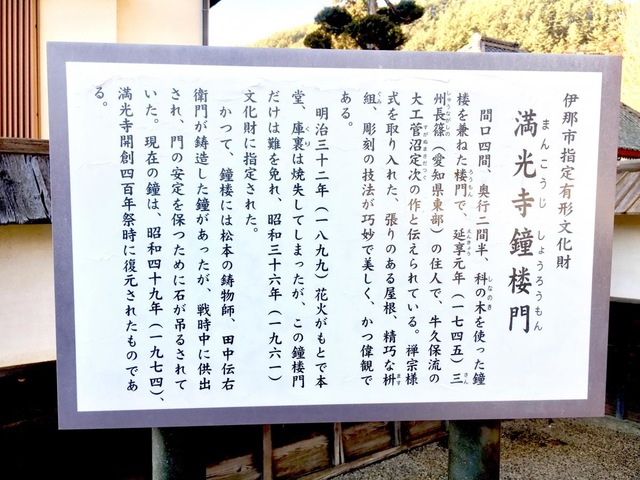 伊那市指定有形文化財
満光寺鐘楼門
まんこうじ しょうろうもん
間口四間、奥行二間半、科の木を使った鐘
しなのき
楼を兼ねた楼門で、延享元年（一七四五）三
ろうもん えんきょう さん
州長篠（愛知県東部）の住人で、牛久保流の
しゅうながしの
大工菅沼定次の作と伝えられている。禅宗様
すがぬまさだつぐ
式を取り入れた、張りのある屋根、精巧な枡
ます
組、彫刻の技法が巧妙で美しく、かつ偉観で
ぐみ
ある。
明治三十二年（一八九九）花火がもとで本
堂、庫裏は焼失してしまったが、この鐘楼門
くり
だけは難を免れ、昭和三十六年（一九六一）
文化財に指定された。
かつて、鐘楼には松本の鋳物師、田中伝右
衛門が鋳造した鐘があったが、戦時中に供出
され、門の安定を保つために石が吊るされて
いた。現在の鐘は、昭和四十九年（一九七四）、
満光寺開創四百年祭時に復元されたものであ
る。